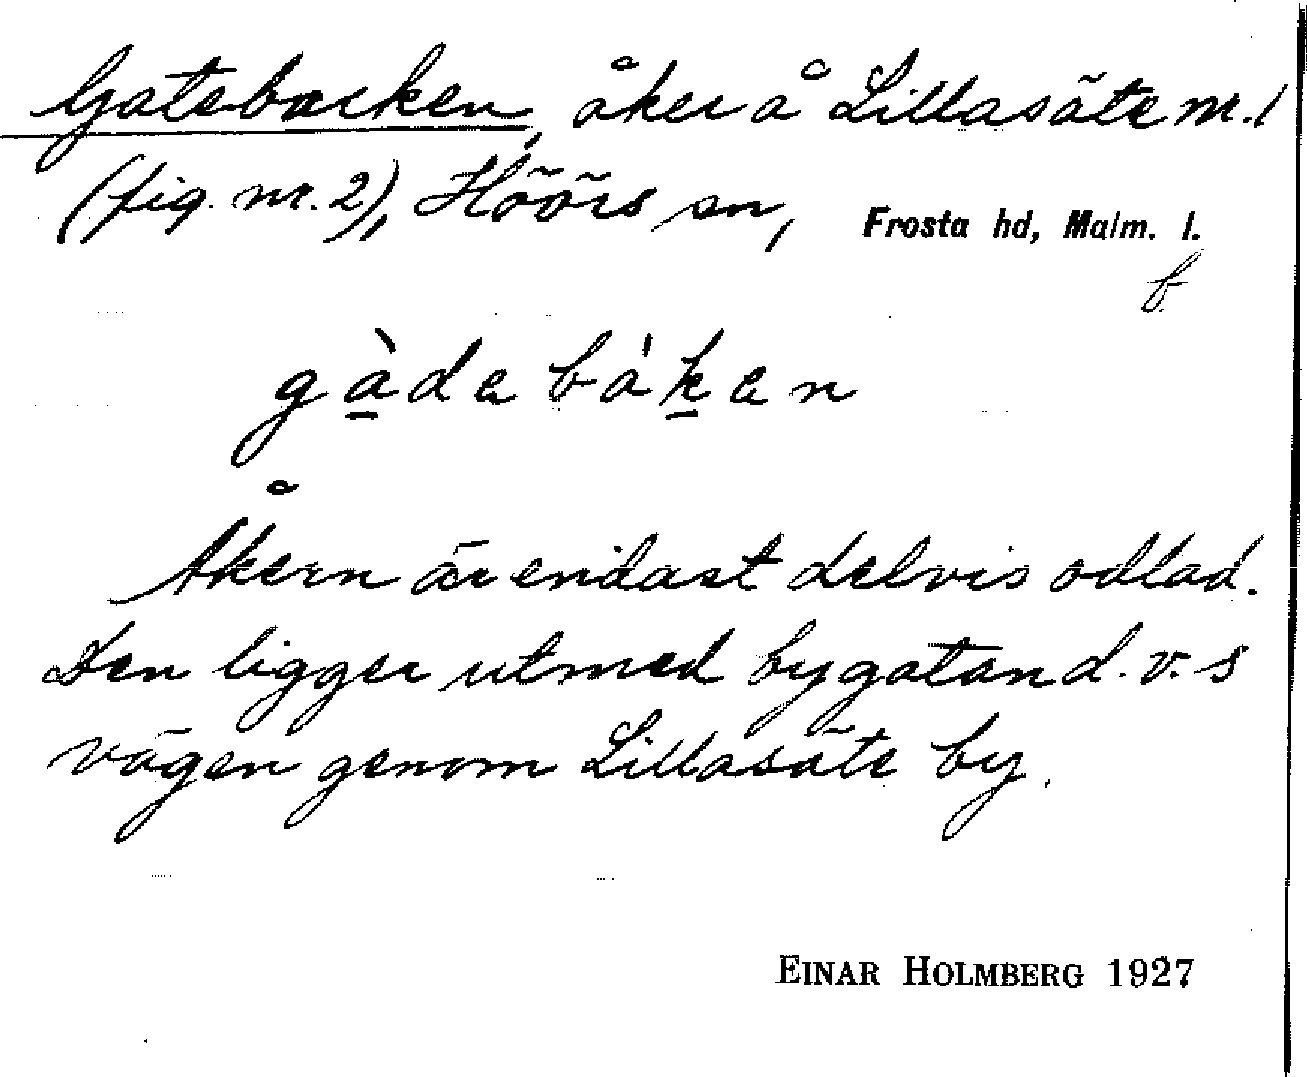 Gatebacken, åker å Lillasäte nr. 1
(fig. nr. 2), Höörs sn, Frosta hd, Malm. l.
b
gàdabákan
Åkern är endast delvis odlad.
Den ligger utmed bygatan d.v.s
vägen genom Lillasäte by.
EINAR HOLMBERG 1927